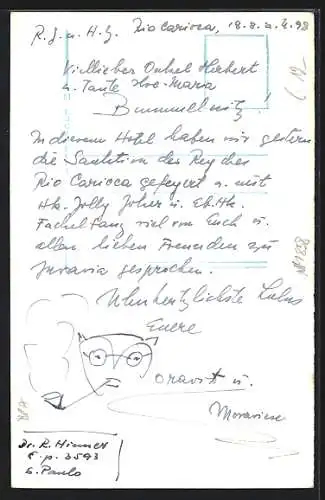 R. J. u. H. G. Rio Carioca, 18. 8. a. U. 98
Viellieber Onkel Herbert
u. Tante Ilse-Maria
Bummelwitz!
In diesem Hotel haben wir gestern
die Sanktion des Reyches
Rio Carioca gefeyert u. mit
Hk. Jolly Joker u. Eb. Hk.
Fackelsang viel von Euch u.
allen lieben Freunden zu
Juvavia gesprochen.
Uhuhertzlichste Lulus
Euere
Oravit u.
Moraviese
Dr. R. Himmel
C. p. 3593
S. Paulo